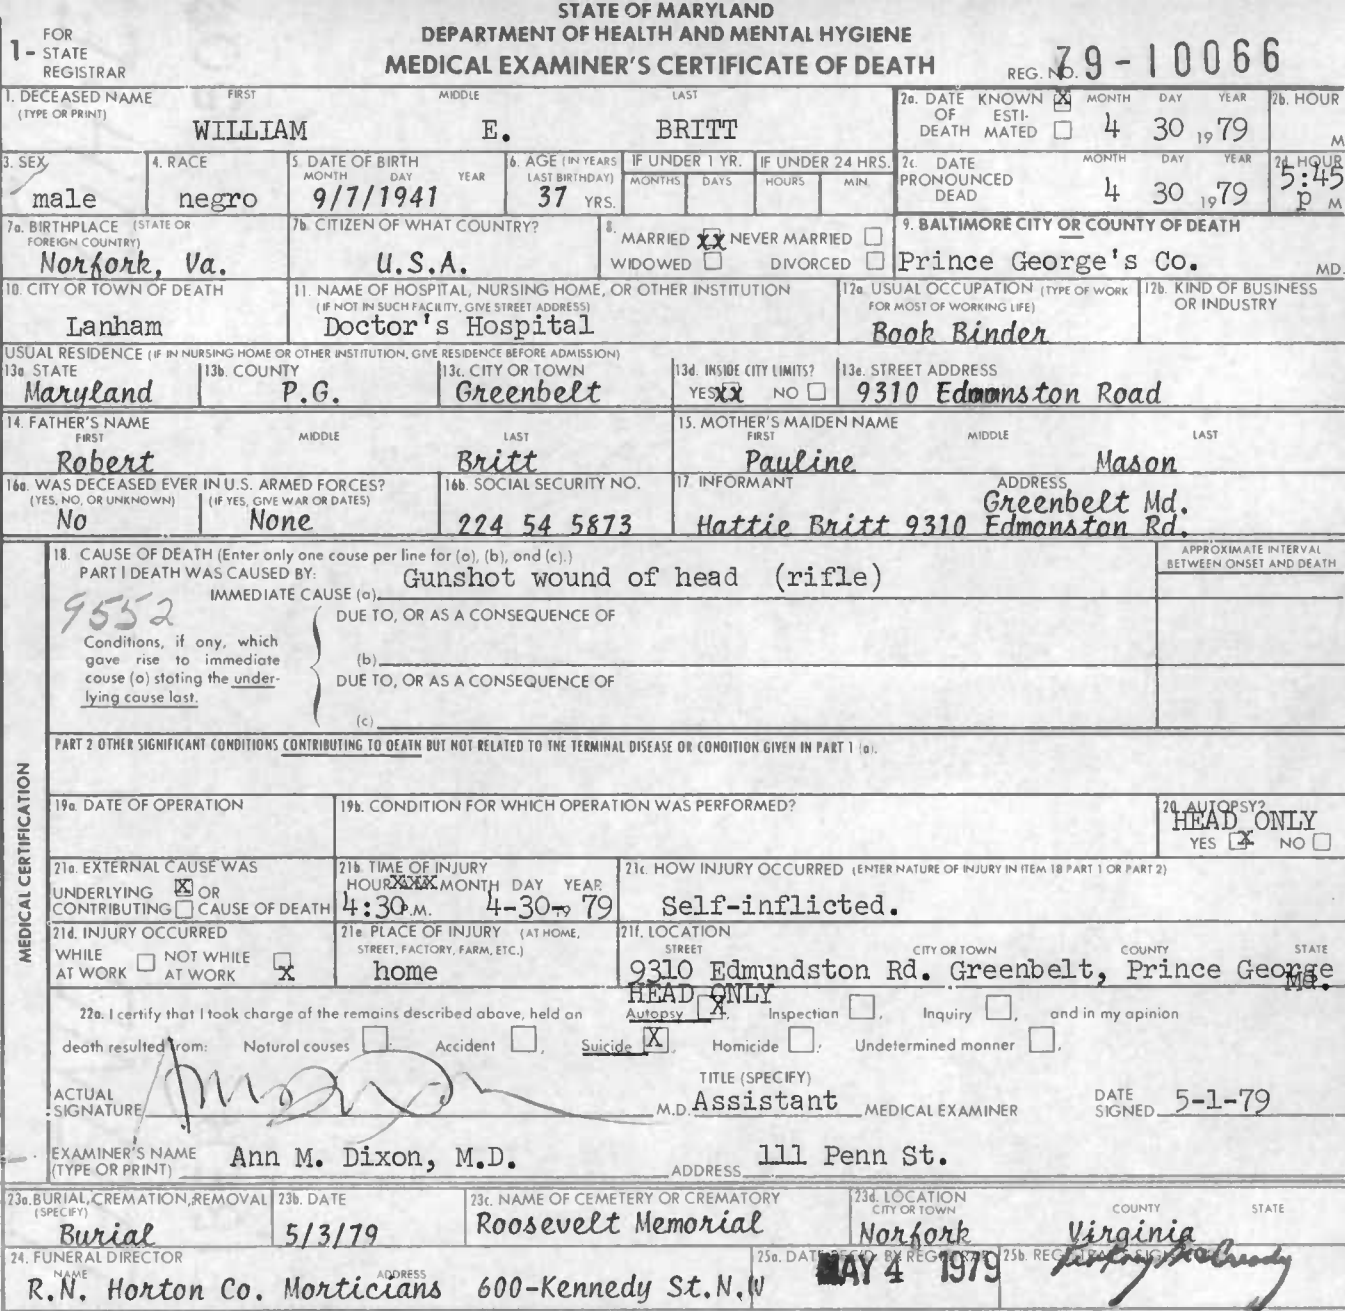 STATE OF MARYLAND
DEPARTMENT OF HEALTH AND MENTAL HYGIENE
MEDICAL EXAMINER'S CERTIFICATE OF DEATH
1- FOR STATE REGISTRAR
REG. NO. 79-10066
1. DECEASED NAME (TYPE OR PRINT) FIRST MIDDLE LAST
WILLIAM E. BRITT
2a. DATE OF DEATH KNOWN X ESTIMATED MONTH DAY YEAR
4 30 1979
2b. HOUR M
3. SEX
male
4. RACE
negro
5. DATE OF BIRTH MONTH DAY YEAR
9/7/1941
6. AGE (IN YEARS LAST BIRTHDAY)
37 YRS.
IF UNDER 1 YR. MONTHS DAYS
IF UNDER 24 HRS. HOURS MIN.
2c. DATE PRONOUNCED DEAD MONTH DAY YEAR
4 30 1979
2d. HOUR
5:45 p M
7a. BIRTHPLACE (STATE OR FOREIGN COUNTRY)
Norfork, Va.
7b. CITIZEN OF WHAT COUNTRY?
U.S.A.
8. MARRIED XX NEVER MARRIED
WIDOWED DIVORCED
9. BALTIMORE CITY OR COUNTY OF DEATH
Prince George's Co. MD.
10. CITY OR TOWN OF DEATH
Lanham
11. NAME OF HOSPITAL, NURSING HOME, OR OTHER INSTITUTION
(IF NOT IN SUCH FACILITY, GIVE STREET ADDRESS)
Doctor's Hospital
12a. USUAL OCCUPATION (TYPE OF WORK FOR MOST OF WORKING LIFE)
Book Binder
12b. KIND OF BUSINESS OR INDUSTRY
USUAL RESIDENCE (IF IN NURSING HOME OR OTHER INSTITUTION, GIVE RESIDENCE BEFORE ADMISSION)
13a. STATE
Maryland
13b. COUNTY
P.G.
13c. CITY OR TOWN
Greenbelt
13d. INSIDE CITY LIMITS?
YES XX NO
13e. STREET ADDRESS
9310 Edmonston Road
14. FATHER'S NAME FIRST MIDDLE LAST
Robert Britt
15. MOTHER'S MAIDEN NAME FIRST MIDDLE LAST
Pauline Mason
16a. WAS DECEASED EVER IN U.S. ARMED FORCES?
(YES, NO, OR UNKNOWN) (IF YES, GIVE WAR OR DATES)
No None
16b. SOCIAL SECURITY NO.
224 54 5873
17. INFORMANT ADDRESS
Greenbelt Md.
Hattie Britt 9310 Edmonston Rd.
MEDICAL CERTIFICATION
18. CAUSE OF DEATH (Enter only one cause per line for (a), (b), and (c).)
PART I DEATH WAS CAUSED BY:
IMMEDIATE CAUSE (a) Gunshot wound of head (rifle)
APPROXIMATE INTERVAL BETWEEN ONSET AND DEATH
9552
Conditions, if any, which
gave rise to immediate
cause (a) stating the under-
lying cause last.
DUE TO, OR AS A CONSEQUENCE OF
(b)
DUE TO, OR AS A CONSEQUENCE OF
(c)
PART 2 OTHER SIGNIFICANT CONDITIONS CONTRIBUTING TO DEATH BUT NOT RELATED TO THE TERMINAL DISEASE OR CONDITION GIVEN IN PART 1 (a).
19a. DATE OF OPERATION
19b. CONDITION FOR WHICH OPERATION WAS PERFORMED?
20. AUTOPSY?
HEAD ONLY
YES X NO
21a. EXTERNAL CAUSE WAS
UNDERLYING X OR
CONTRIBUTING CAUSE OF DEATH
21b. TIME OF INJURY
HOUR XXX MONTH DAY YEAR
4:30 P.M. 4-30-19 79
21c. HOW INJURY OCCURRED (ENTER NATURE OF INJURY IN ITEM 18 PART 1 OR PART 2)
Self-inflicted.
21d. INJURY OCCURRED
WHILE AT WORK NOT WHILE AT WORK X
21e. PLACE OF INJURY (AT HOME, STREET, FACTORY, FARM, ETC.)
home
21f. LOCATION
STREET CITY OR TOWN COUNTY STATE
9310 Edmundston Rd. Greenbelt, Prince George
Md.
HEAD ONLY
22a. I certify that I took charge of the remains described above, held an Autopsy X, Inspection, Inquiry, and in my opinion
death resulted from: Natural causes, Accident, Suicide X, Homicide, Undetermined manner.
ACTUAL SIGNATURE M.D.
TITLE (SPECIFY)
Assistant MEDICAL EXAMINER
DATE SIGNED 5-1-79
EXAMINER'S NAME (TYPE OR PRINT) Ann M. Dixon, M.D.
ADDRESS 111 Penn St.
23a. BURIAL, CREMATION, REMOVAL (SPECIFY)
Burial
23b. DATE
5/3/79
23c. NAME OF CEMETERY OR CREMATORY
Roosevelt Memorial
23d. LOCATION CITY OR TOWN COUNTY STATE
Norfork Virginia
24. FUNERAL DIRECTOR
NAME ADDRESS
R.N. Horton Co. Morticians 600-Kennedy St.N.W
25a. DATE REC'D. BY REGISTRAR
MAY 4 1979
25b. REGISTRAR'S SIGNATURE